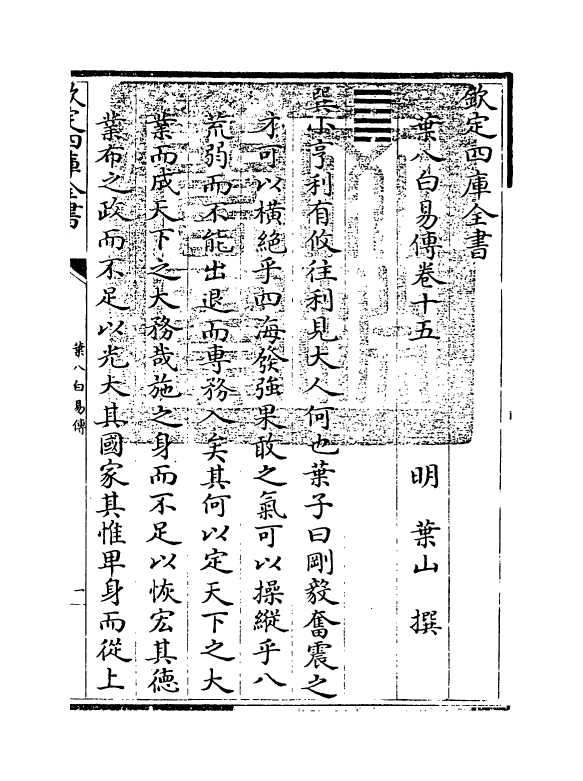 欽定四庫全書
葉八白易傳卷十五
明 葉山 撰
巽小亨利有攸往利見大人何也葉子曰剛毅奮震之
才可以橫絶乎四海發強果敢之氣可以操縱乎八
荒弱而不能出退而專務入矣其何以定天下之大
業而成天下之大務哉施之身而不足以恢宏其德
業布之政而不足以光大其國家其惟卑身而從上
欽定四庫全書
葉八白易傳
一